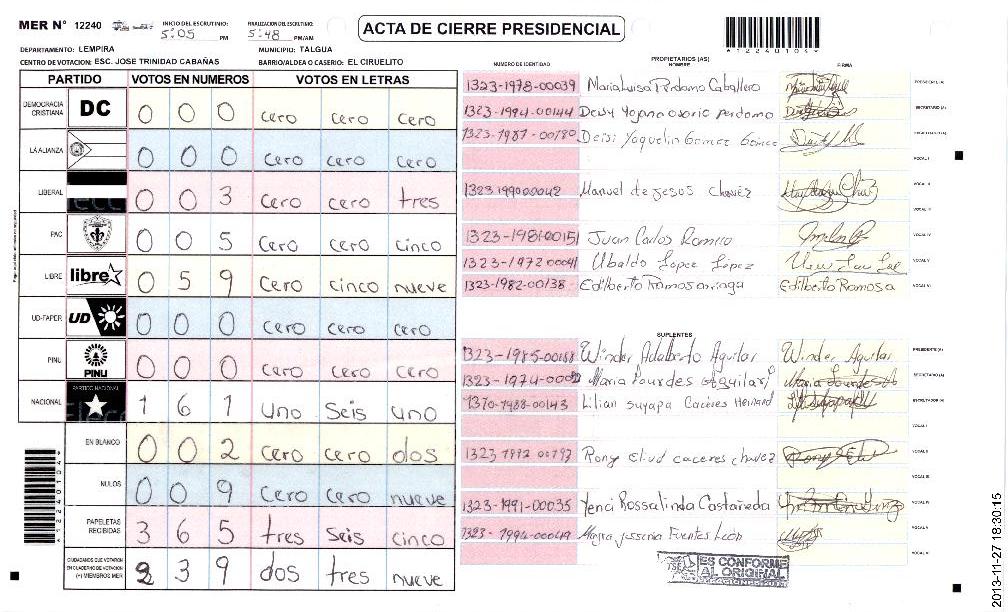 MER N° 12240
INICIO DEL ESCRUTINIO: 5:05 PM
FINALIZACION DEL ESCRUTINIO: 5:48 PM/AM
ACTA DE CIERRE PRESIDENCIAL
DEPARTAMENTO: LEMPIRA
MUNICIPIO: TALGUA
CENTRO DE VOTACION: ESC. JOSE TRINIDAD CABAÑAS
BARRIO/ALDEA O CASERIO: EL CIRUELITO
PARTIDO VOTOS EN NUMEROS VOTOS EN LETRAS
DEMOCRACIA CRISTIANA DC 0 0 0 cero cero cero
LA ALIANZA 0 0 0 cero cero cero
LIBERAL 0 0 3 cero cero tres
PAC 0 0 5 cero cero cinco
LIBRE libre 0 5 9 Cero cinco nueve
UD-FAPER UD 0 0 0 cero cero cero
PINU PINU 0 0 0 cero cero cero
NACIONAL PARTIDO NACIONAL 1 6 1 Uno Seis uno
EN BLANCO 0 0 2 cero cero dos
NULOS 0 0 9 Cero Cero nueve
PAPELETAS RECIBIDAS 3 6 5 tres Seis cinco
CIUDADANOS QUE VOTARON EN CUADERNO DE VOTACION (+) MIEMBROS MER 2 3 9 dos tres nueve
PROPIETARIOS (AS)
NUMERO DE IDENTIDAD NOMBRE FIRMA
1323-1978-00039 Maria Luisa Perdomo Caballero PRESIDENTE (A)
1323-1994-00144 Deisy Yojana osorio perdomo SECRETARIO (A)
1323-1987-00180 Deisi Yaquelin Gomez Gomez
VOCAL I
1323 1990 00042 Manuel de jesus chavez
1323-1981-00151 Juan Carlos Romero VOCAL IV
1323-1972 00041 Ubaldo Lopez López VOCAL V
1323-1982-00138 Edilberto Ramos Edilberto Ramos VOCAL VI
SUPLENTES
1323-1985-00168 Winder Adalberto Aguilar Winder Aguilar PRESIDENTE (A)
1323-1974- Maria Lourdes SECRETARIO (A)
1370-1988-00143 Lilian suyapa Caceres
VOCAL I
1323 1992 00197 Rony Eliud caceres chavez VOCAL II
VOCAL III
1323-1991-00035 Yenci Rossalinda Castañeda VOCAL IV
1323-1994-00049 Mayra Jessenia Fuentes Leon VOCAL V
VOCAL VI
TSE ES CONFORME AL ORIGINAL
2013-11-27 18:30:15